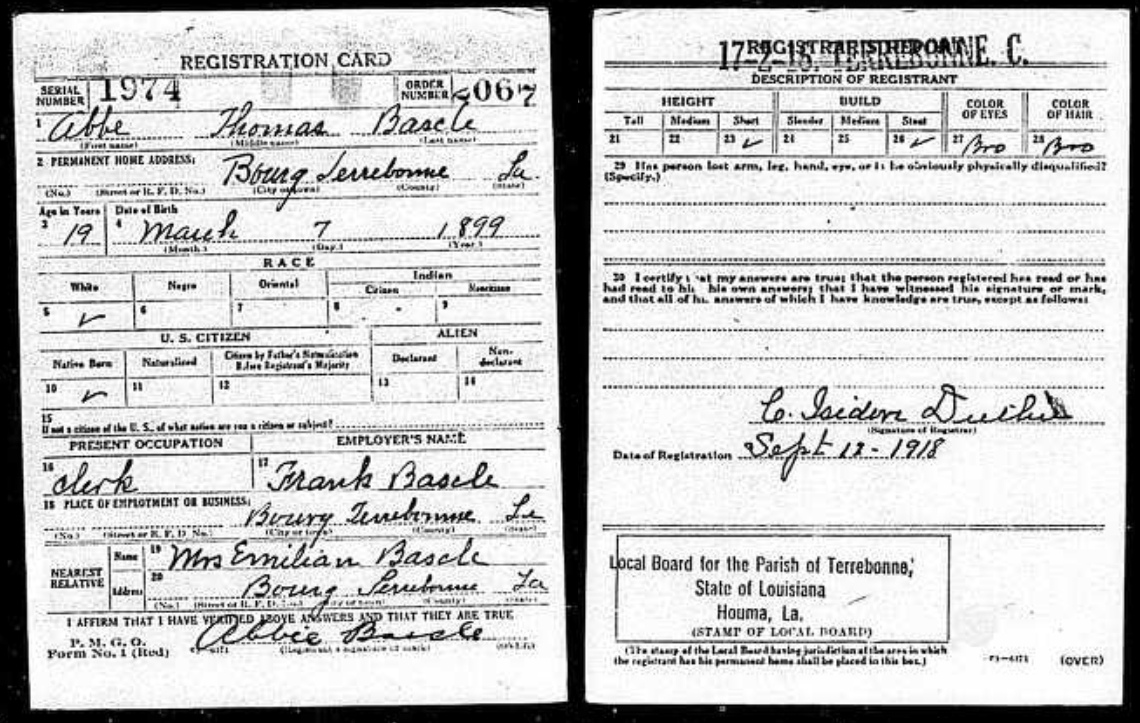 REGISTRATION CARD
SERIAL NUMBER 1974 ORDER NUMBER
1 Abbe Thomas Bascle
(First name) (Middle name) (Last name)
2 PERMANENT HOME ADDRESS:
Bourg Terrebonne La.
(No.) (Street or R. F. D. No.) (City or town) (County) (State)
Age in Years Date of Birth
3 19 4 March 7 1899
(Month.) (Day.) (Year.)
RACE
White Negro Oriental Indian
Citizen Noncitizen
5 ✓ 6 7 8 9
U. S. CITIZEN ALIEN
Native Born Naturalized Citizen by Father's Naturalization Before Registrant's Majority Declarant Non-declarant
10 ✓ 11 12 13 14
15
If not a citizen of the U. S., of what nation are you a citizen or subject?
PRESENT OCCUPATION EMPLOYER'S NAME
16 clerk 17 Frank Bascle
18 PLACE OF EMPLOYMENT OR BUSINESS:
Bourg Terrebonne La
(No.) (Street or R. F. D. No.) (City or town) (County) (State)
NEAREST RELATIVE Name 19 Mrs Emilian Bascle
Address 20 Bourg Terrebonne La
(No.) (Street or R. F. D. No.) (City or town) (County) (State)
I AFFIRM THAT I HAVE VERIFIED ABOVE ANSWERS AND THAT THEY ARE TRUE
P. M. G. O.
Form No. 1 (Red) Abbie Bascle
(Registrant's signature or mark) (OVER)
REGISTRAR'S REPORT
17-2-18. TERREBONNE. C.
DESCRIPTION OF REGISTRANT
HEIGHT BUILD COLOR OF EYES COLOR OF HAIR
Tall Medium Short Slender Medium Stout
21 22 23 ✓ 24 25 26 ✓ 27 Bro 28 Bro
29 Has person lost arm, leg, hand, eye, or is he obviously physically disqualified?
(Specify.)
30 I certify that my answers are true; that the person registered has read or has
had read to him his own answers; that I have witnessed his signature or mark,
and that all of his answers of which I have knowledge are true, except as follows:
C. Isidore
(Signature of Registrar)
Date of Registration Sept 12 - 1918
Local Board for the Parish of Terrebonne,
State of Louisiana
Houma, La.
(STAMP OF LOCAL BOARD)
(The stamp of the Local Board having jurisdiction of the area in which
the registrant has his permanent home shall be placed in this box.)
(OVER)